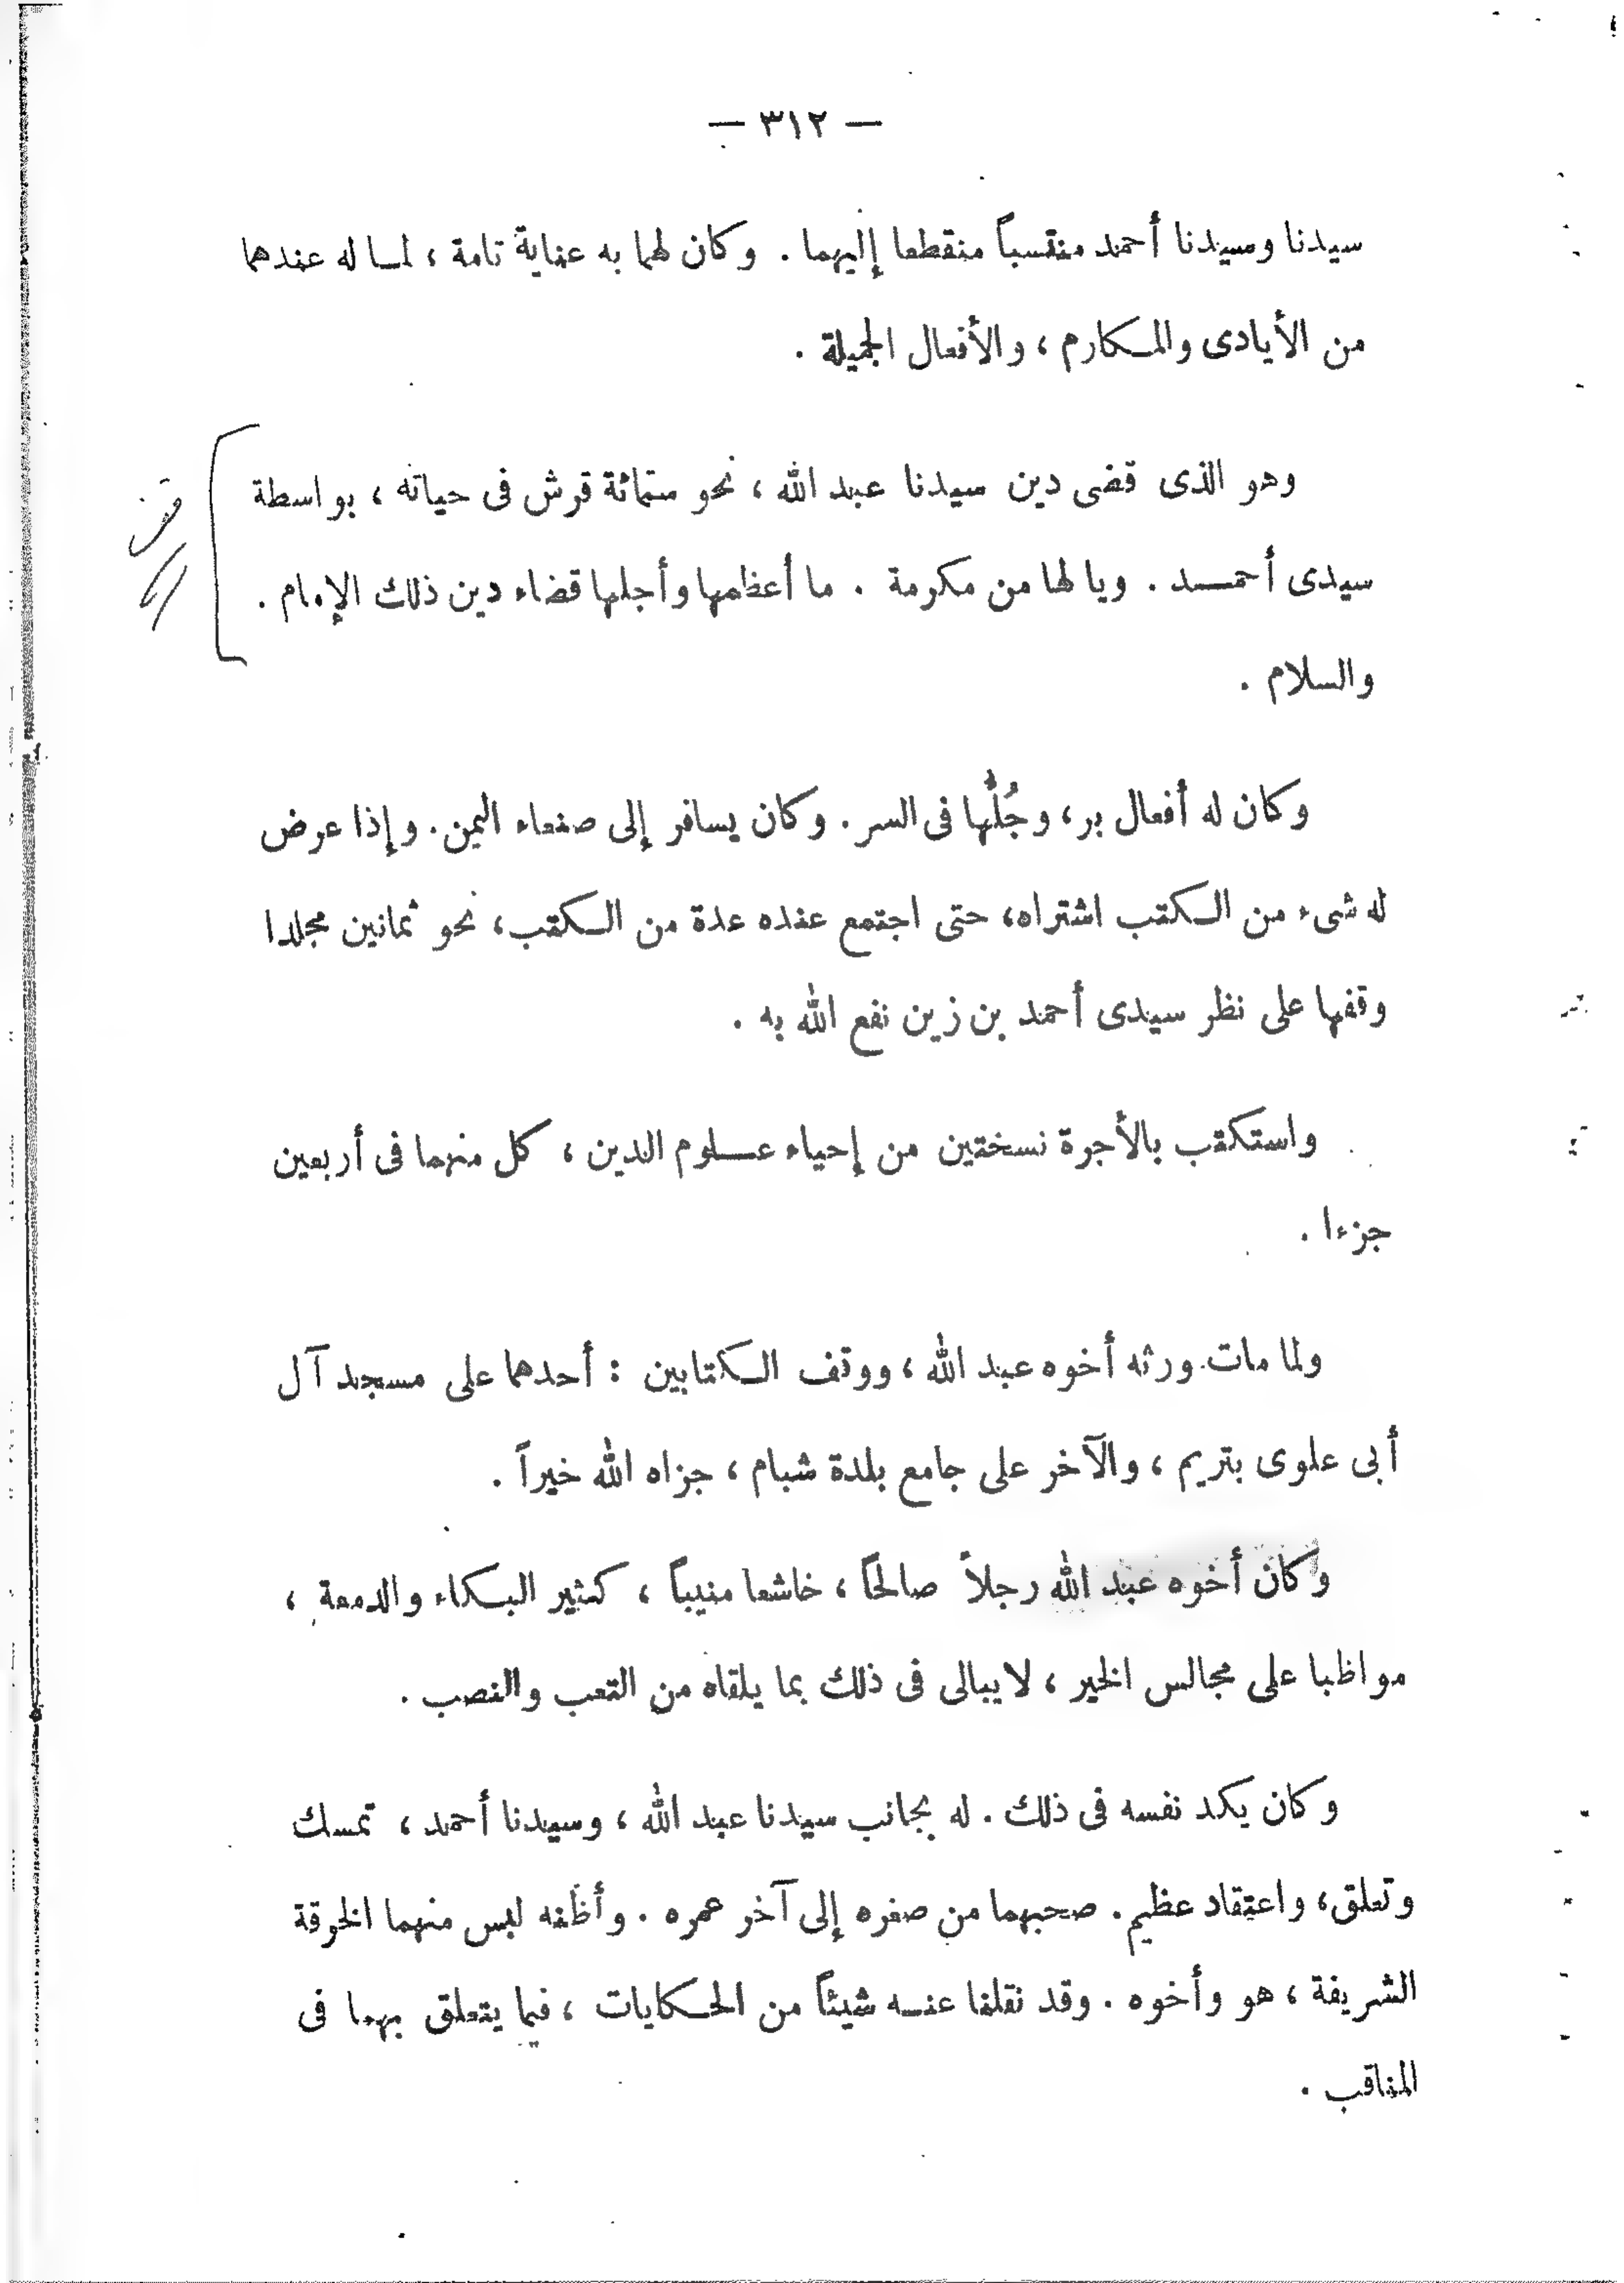 — ٣١٢ —
سيدنا وسيدنا أحمد منتسباً منقطعا إليهما . وكان لهما به عناية تامة ، لما له عندهما
من الأيادى والمكارم ، والأفعال الجميلة .
وهو الذى قضى دين سيدنا عبد الله ، نحو ستمائة قرش فى حياته ، بواسطة
سيدى أحمد . ويا لها من مكرمة . ما أعظمها وأجلها قضاء دين ذلك الإمام .
والسلام .
وكان له أفعال بر ، وجُلُّها فى السر . وكان يسافر إلى صنعاء اليمن . وإذا عرض
له شىء من الكتب اشتراه ، حتى اجتمع عنده عدة من الكتب ، نحو ثمانين مجلدا
وقفها على نظر سيدى أحمد بن زين نفع الله به .
واستكتب بالأجرة نسختين من إحياء علوم الدين ، كل منهما فى أربعين
جزءا .
ولما مات ورثه أخوه عبد الله ، ووقف الكتابين : أحدهما على مسجد آل
أبى علوى بتريم ، والآخر على جامع بلدة شبام ، جزاه الله خيراً .
وكان أخوه عبد الله رجلاً صالحاً ، خاشعا منيباً ، كثير البكاء والدمعة ،
مواظبا على مجالس الخير ، لا يبالى فى ذلك بما يلقاه من التعب والنصب .
وكان يكد نفسه فى ذلك . له بجانب سيدنا عبد الله ، وسيدنا أحمد ، تمسك
وتعلق ، واعتقاد عظيم . صحبهما من صغره إلى آخر عمره . وأظنه لبس منهما الخرقة
الشريفة ، هو وأخوه . وقد نقلنا عنه شيئاً من الحكايات ، فيما يتعلق بهما فى
المناقب .